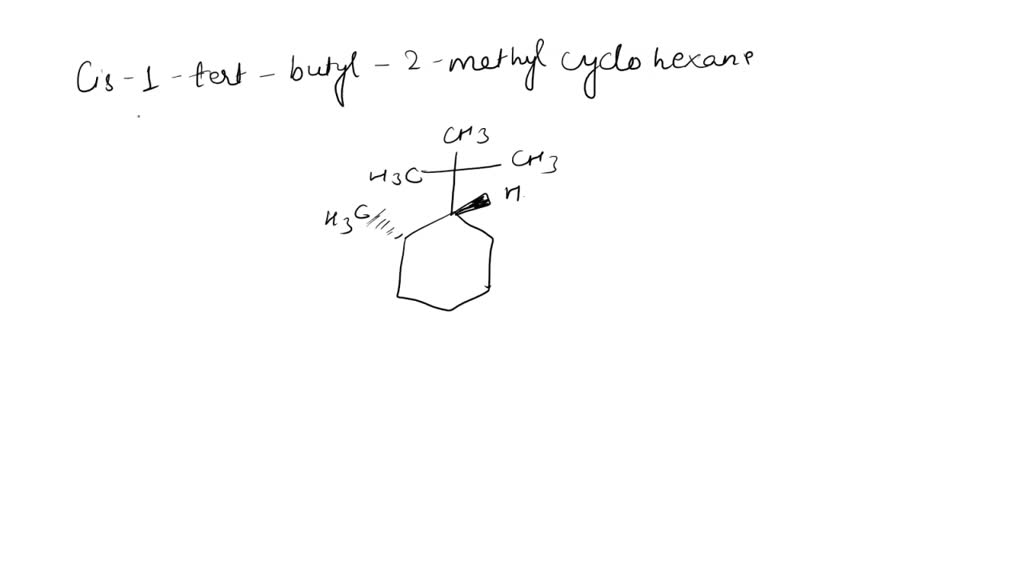 Cis-1-tert-butyl-2-methyl cyclo hexane
CH3
H3C CH3
H3C H